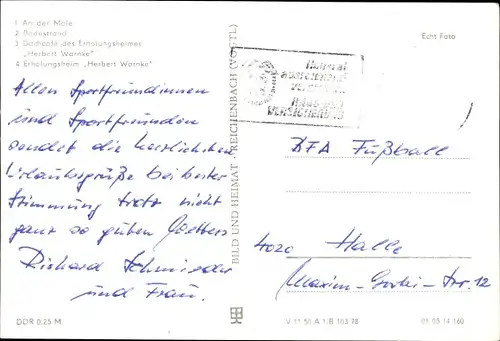 1 An der Mole
2 Badestrand
3 Dachcafé des Erholungsheimes
„Herbert Warnke"
4 Erholungsheim „Herbert Warnke"
Allen Sportfreundinnen
und Sportfreunden
sendet die herzlichsten
Urlaubsgrüße bei bester
Stimmung trotz nicht
ganz so guten Wetters
Richard Schmieder
und Frau.
DDR 0,25 M
BILD UND HEIMAT REICHENBACH (VOGTL)
Echt Foto
VERSICHERUNG
BFA Fußball
4020 Halle
Maxim-Gorki-Str. 12
V 11 50 A 1/B 103/78
01 03 14 160